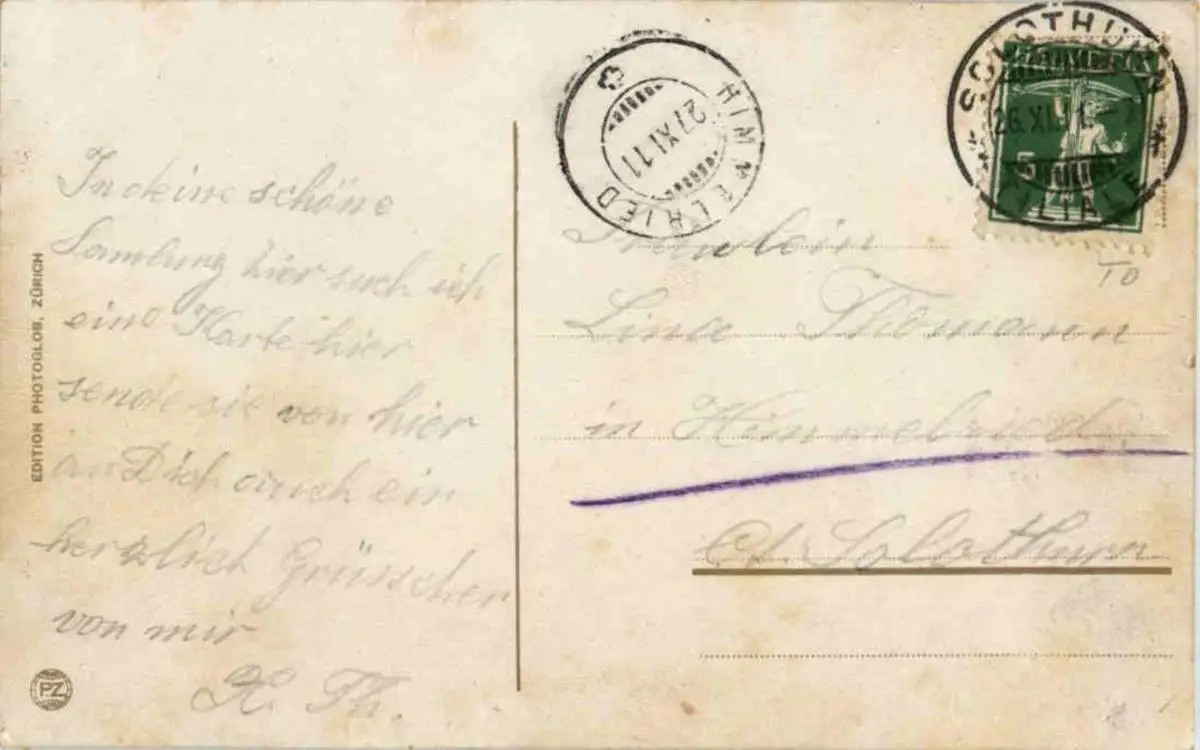 In deine schöne
Samlung hier such ich
eine Karte hier
sende sie von hier
an Dich auch ein
herzlich Grüsschen
von mir
Th.
EDITION PHOTOGLOB, ZÜRICH
PZ
HIMMELRIED
27 XI. 11
SOLOTHURN
26. XI. 11
FILIALE
5
Fräulein
Lina Thomann
in Himmelried
Ct. Solothurn